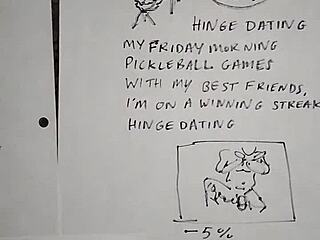 HINGE DATING
MY FRIDAY MORNING
PICKLEBALL GAMES
WITH MY BEST FRIENDS,
I'M ON A WINNING STREAK
HINGE DATING
-5%